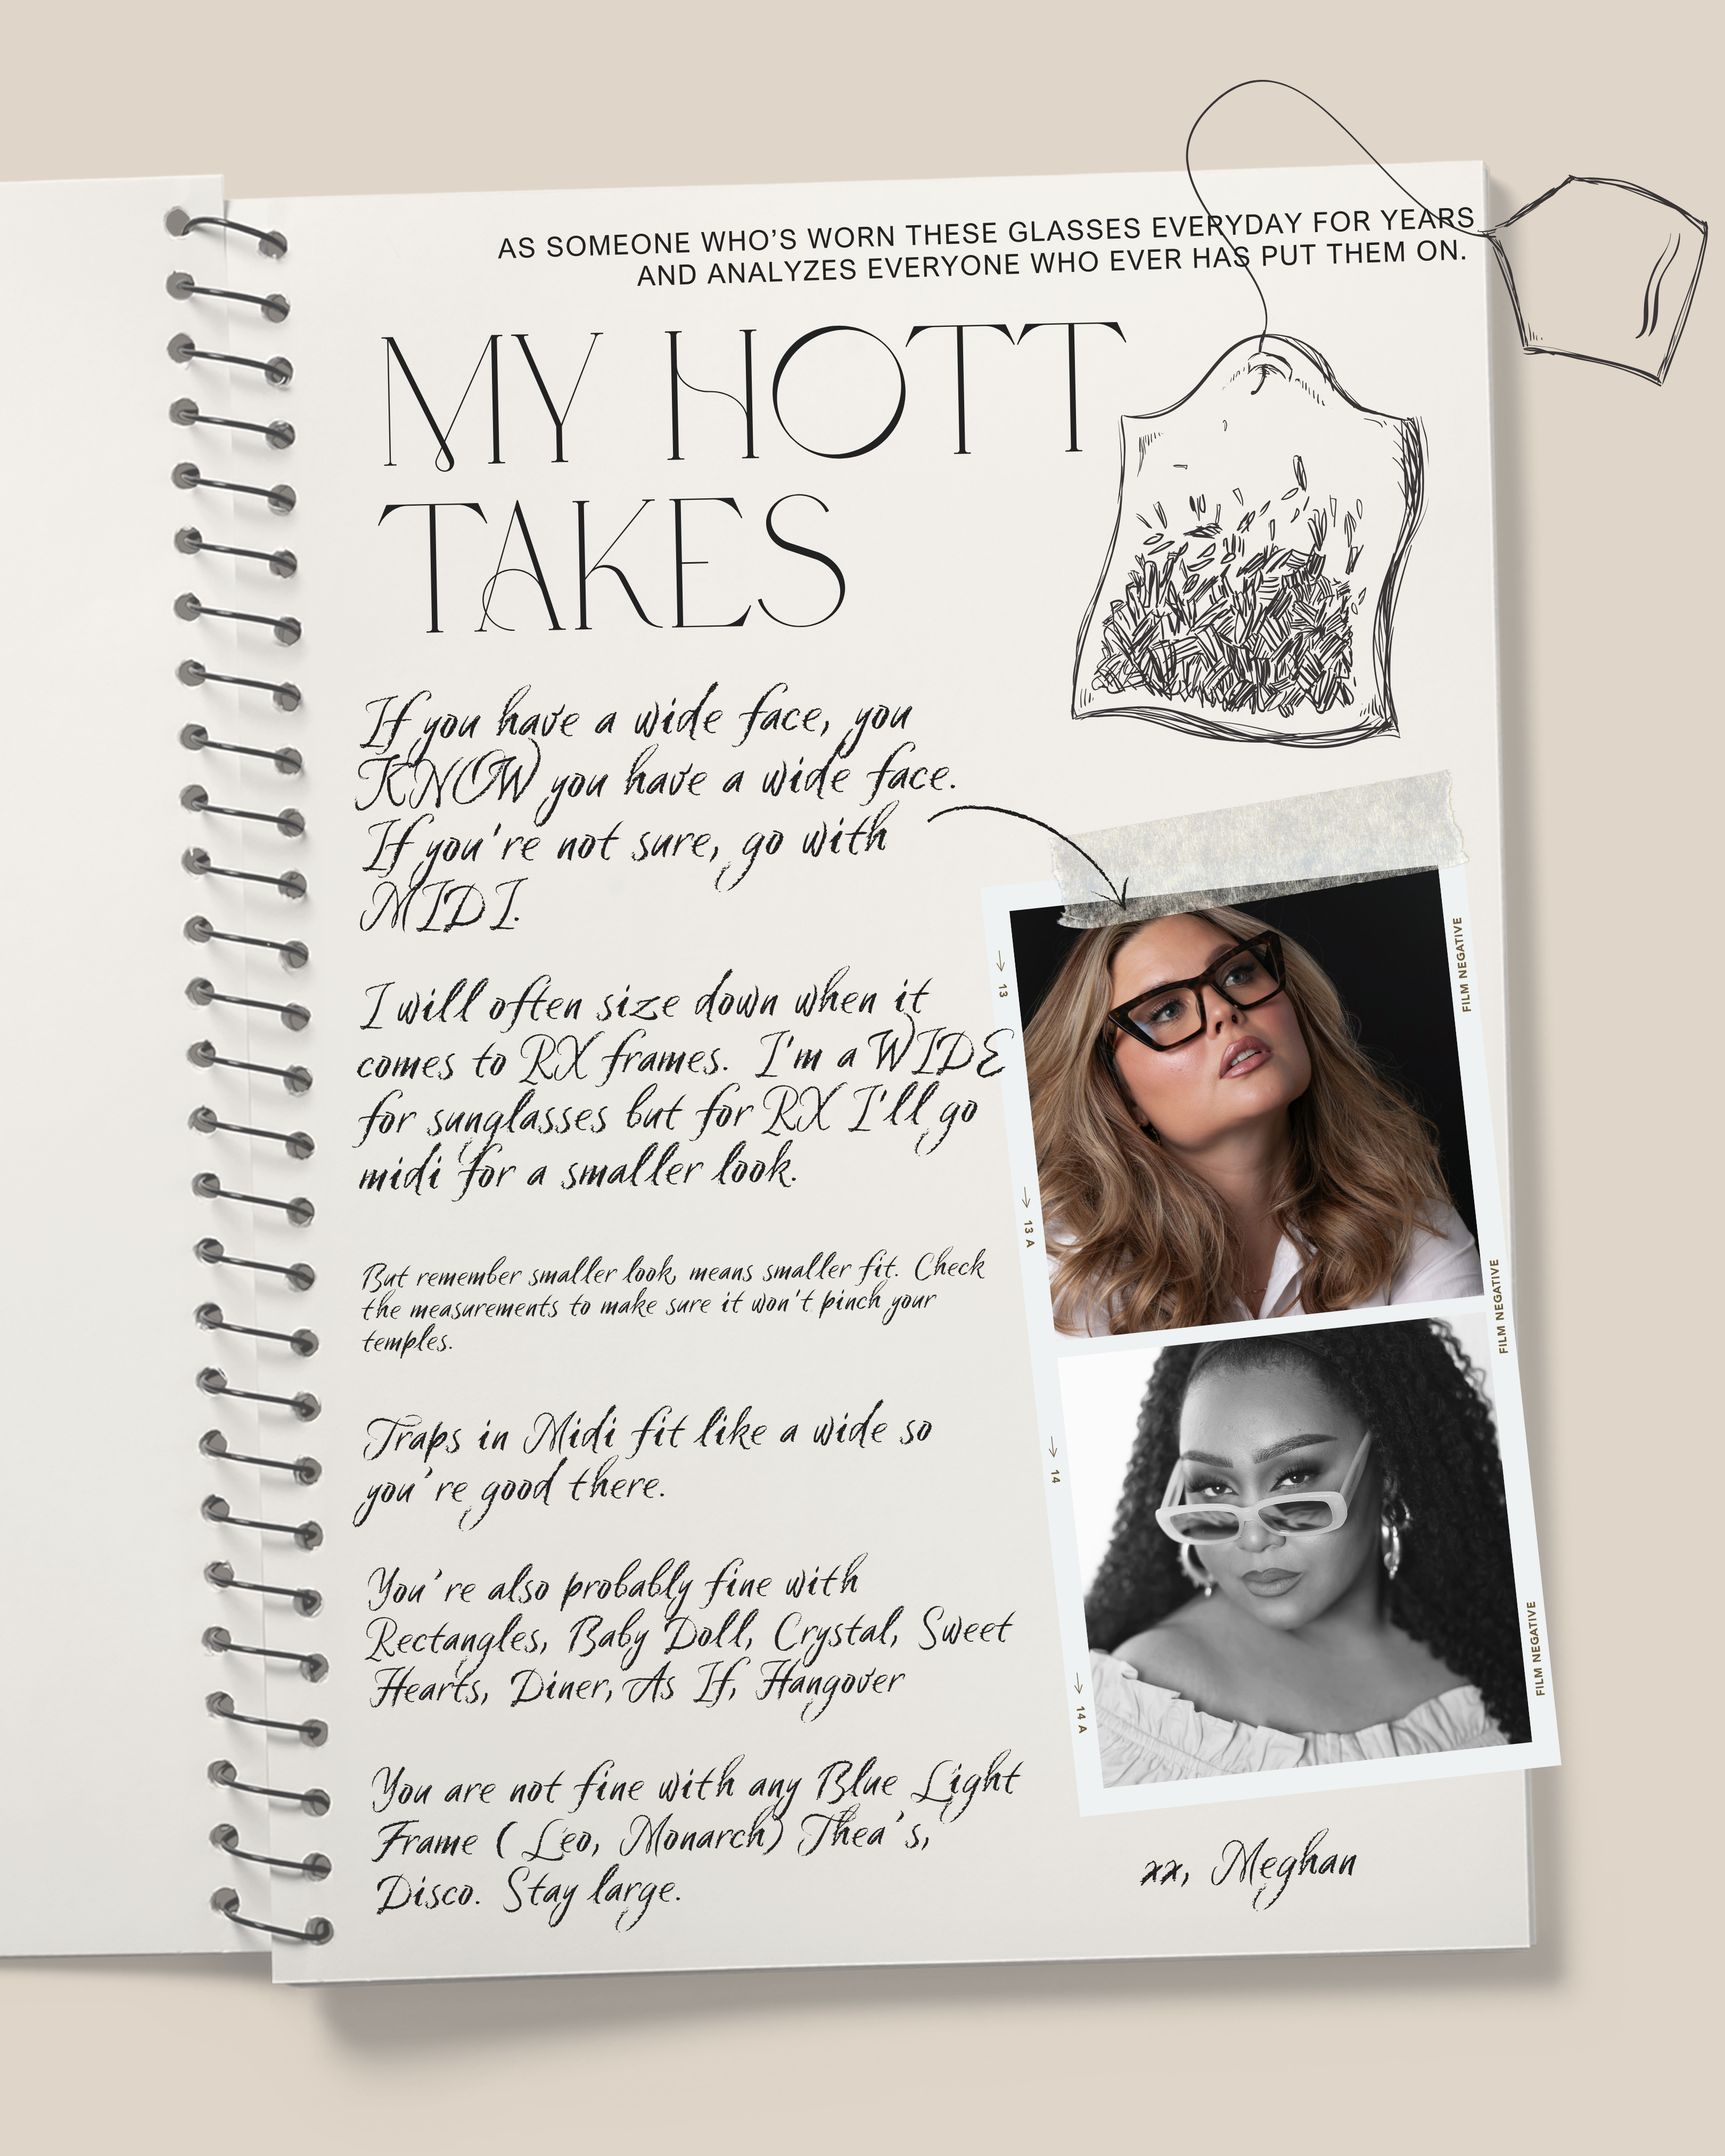 AS SOMEONE WHO'S WORN THESE GLASSES EVERYDAY FOR YEARS
AND ANALYZES EVERYONE WHO EVER HAS PUT THEM ON.
MY HOTT
TAKES
If you have a wide face, you
KNOW you have a wide face.
If you're not sure, go with
MIDI.
I will often size down when it
comes to RX frames. I'm a WIDE
for sunglasses but for RX I'll go
midi for a smaller look.
But remember smaller look, means smaller fit. Check
the measurements to make sure it won't pinch your
temples.
Traps in Midi fit like a wide so
you're good there.
You're also probably fine with
Rectangles, Baby Doll, Crystal, Sweet
Hearts, Diner, As If, Hangover
You are not fine with any Blue Light
Frame ( Leo, Monarch) Thea's,
Disco. Stay large.
→ 13
→ 13 A
→ 14
→ 14 A
FILM NEGATIVE
FILM NEGATIVE
FILM NEGATIVE
xx, Meghan